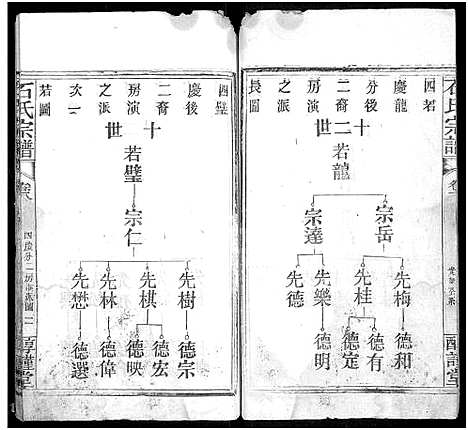 四若
慶龍
二裔
房演
之派
長圖
十二世
若龍
宗岳
宗達
先梅
先桂
先樂
先德
德和
德有
德定
德明
四璧
慶後
二裔
房演
之派
次一
若圖
十一世
若璧
宗仁
先樹
先棋
先林
先懋
德宗
德宏
德映
德偉
德選
石氏宗譜
卷八
石氏宗譜